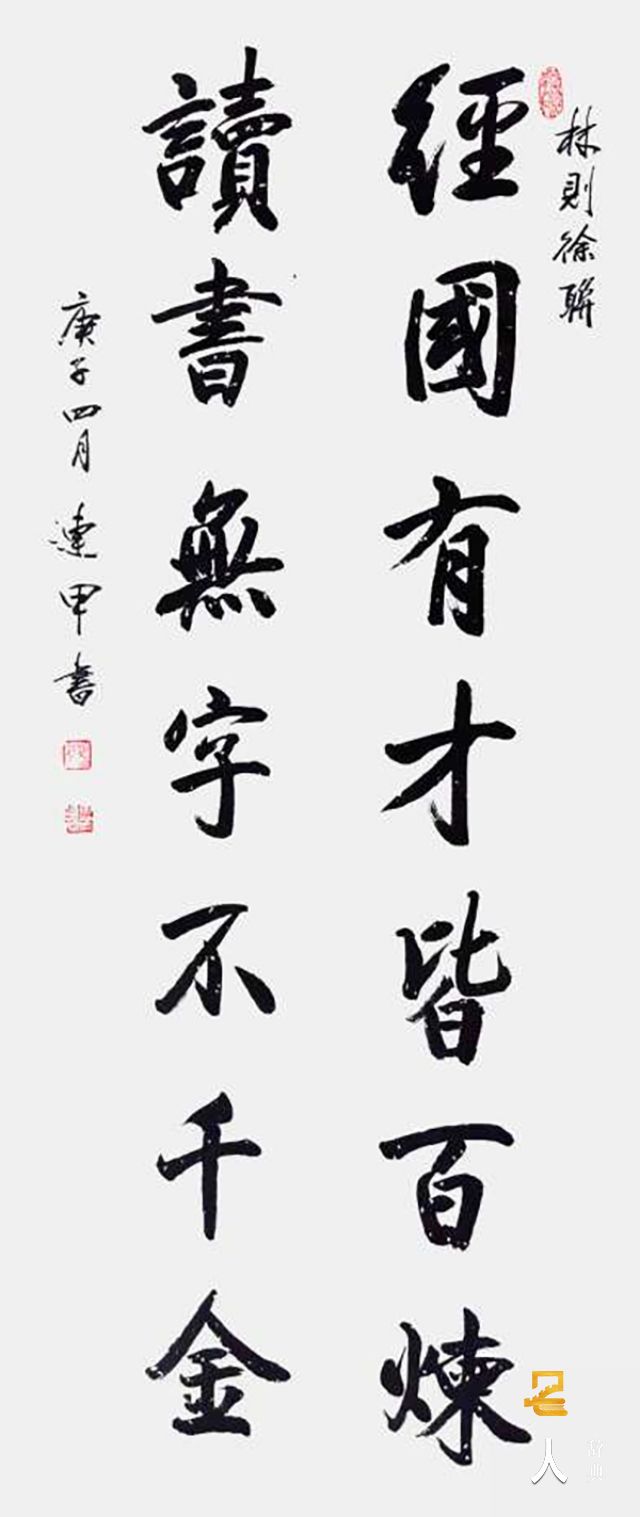 林則徐聯
經國有才皆百煉
讀書無字不千金
庚子四月連甲書
人
辞典